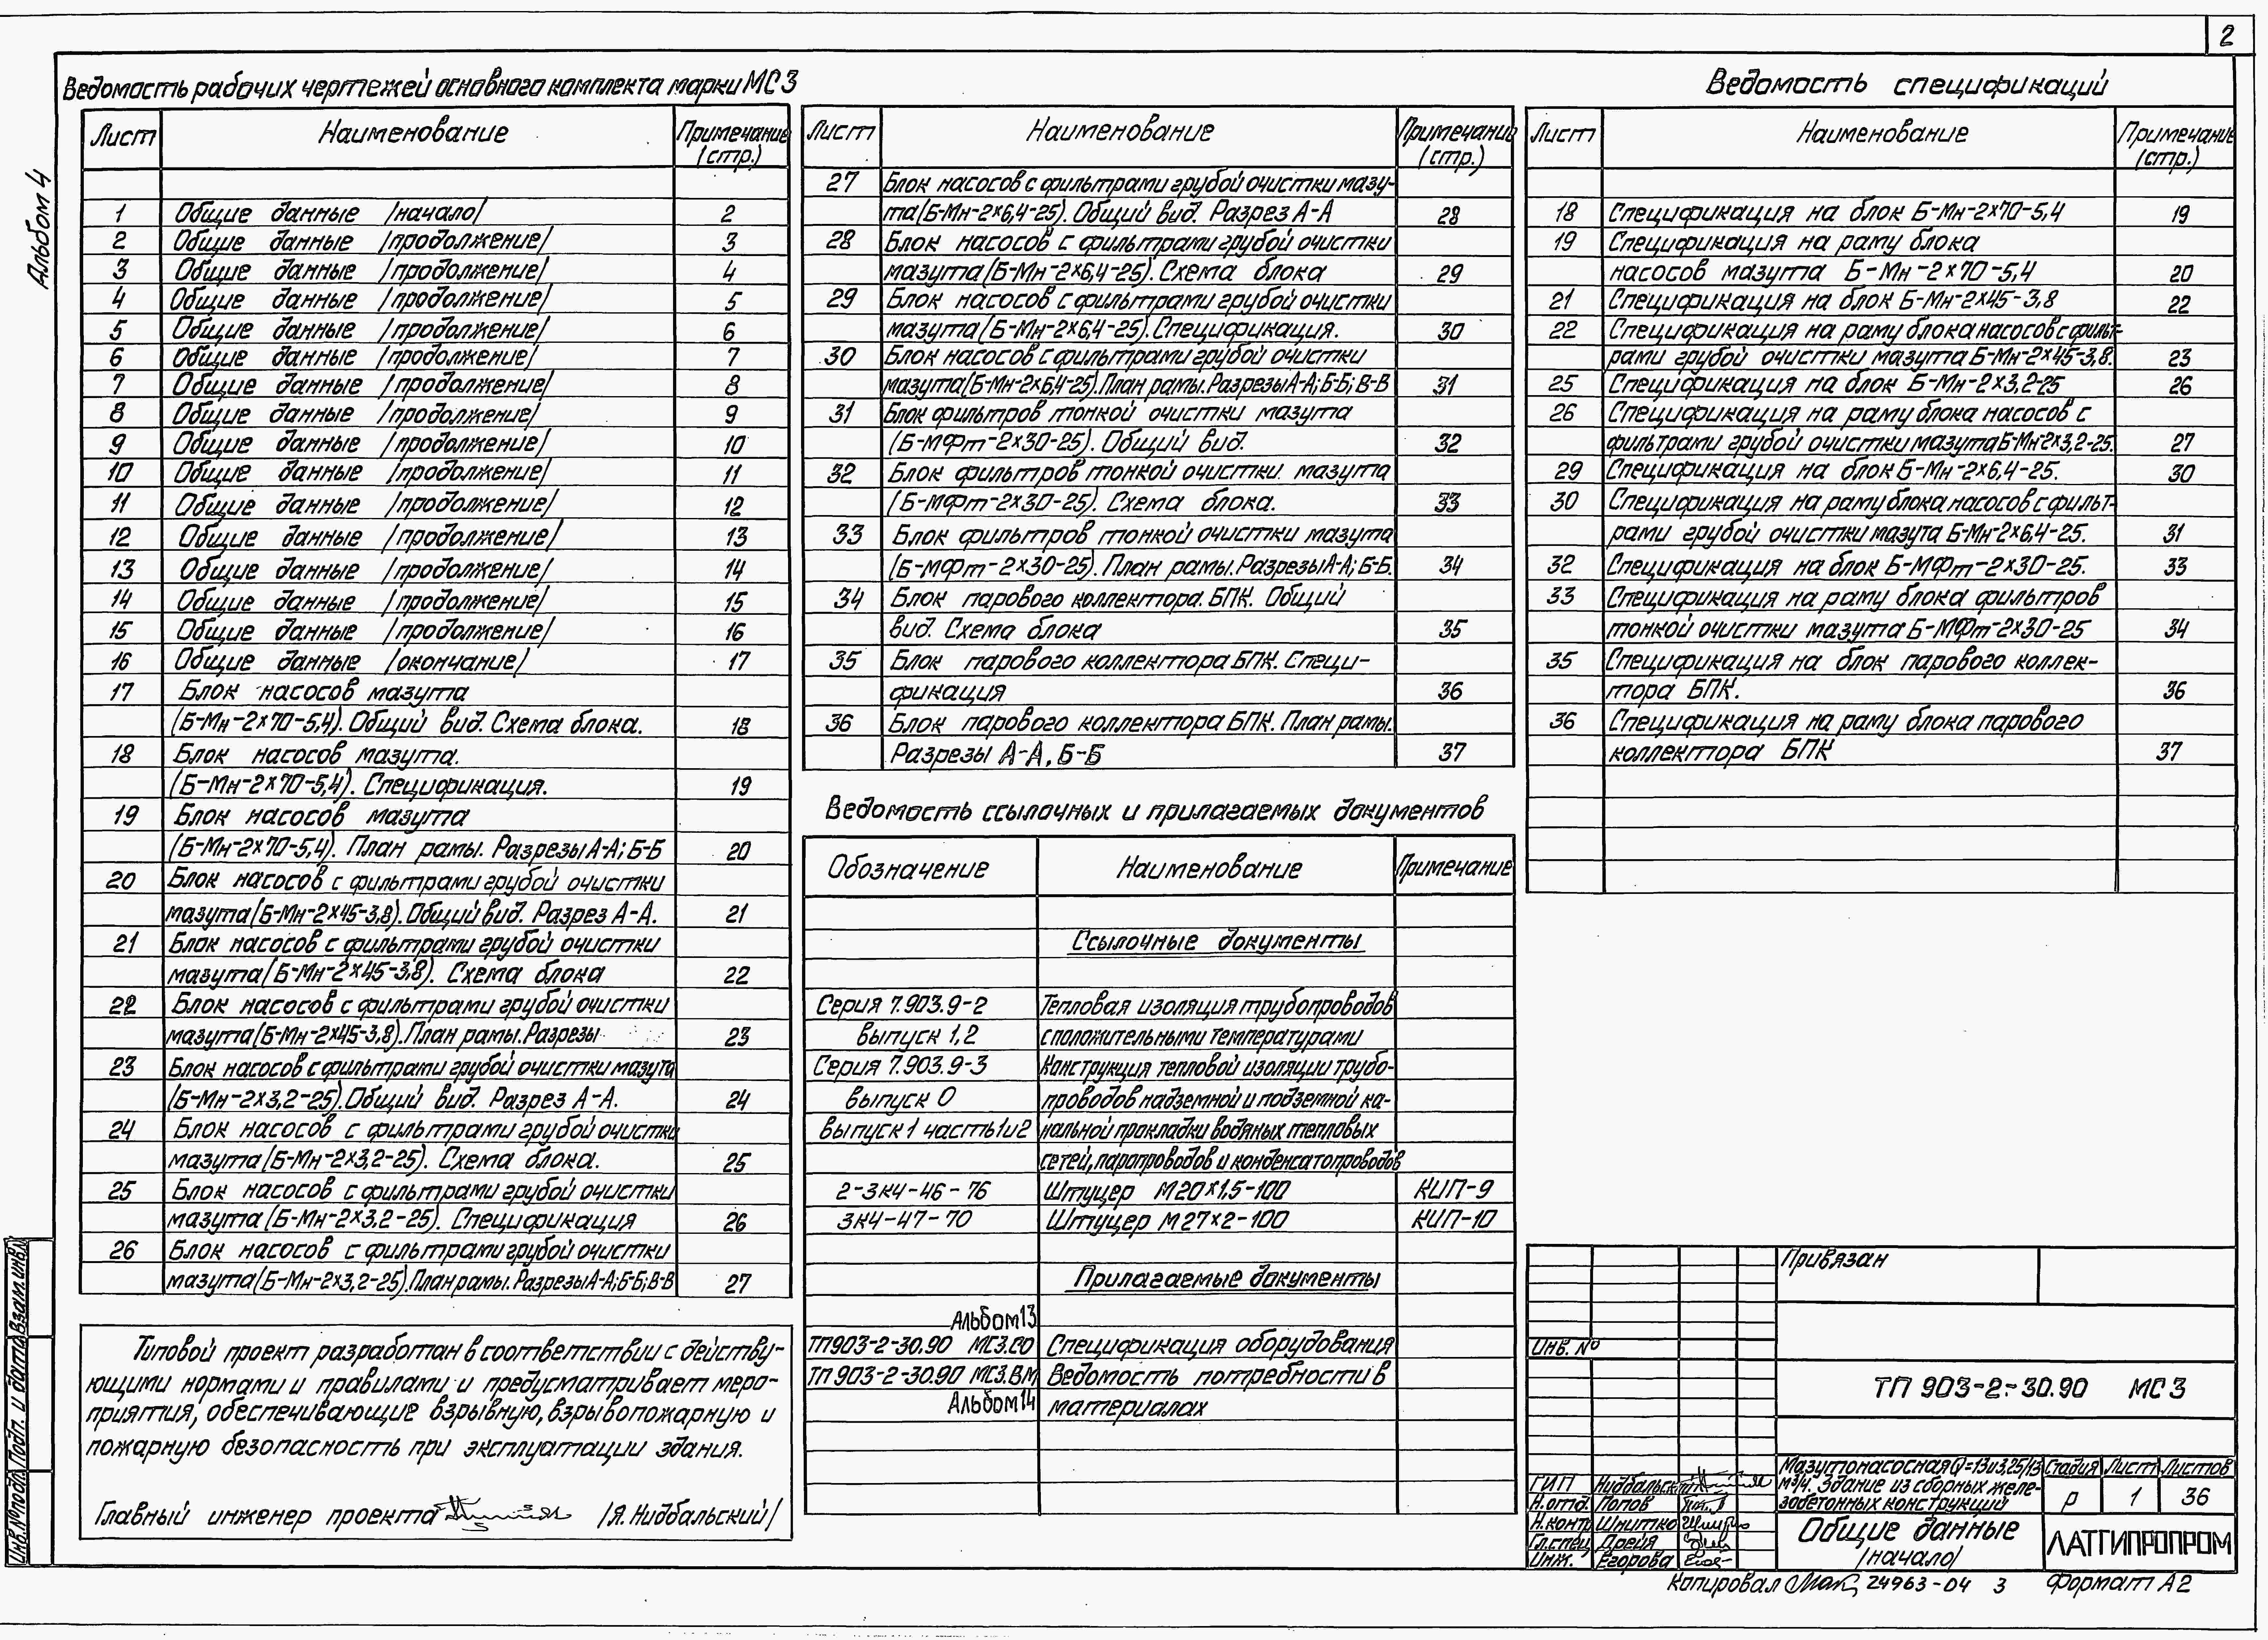 2
Альбом 4
Ведомость рабочих чертежей основного комплекта марки МС 3
Лист Наименование Примечание (стр.)
1 Общие данные /начало/ 2
2 Общие данные /продолжение/ 3
3 Общие данные /продолжение/ 4
4 Общие данные /продолжение/ 5
5 Общие данные /продолжение/ 6
6 Общие данные /продолжение/ 7
7 Общие данные /продолжение/ 8
8 Общие данные /продолжение/ 9
9 Общие данные /продолжение/ 10
10 Общие данные /продолжение/ 11
11 Общие данные /продолжение/ 12
12 Общие данные /продолжение/ 13
13 Общие данные /продолжение/ 14
14 Общие данные /продолжение/ 15
15 Общие данные /продолжение/ 16
16 Общие данные /окончание/ 17
17 Блок насосов мазута
(Б-Мн-2×70-5,4). Общий вид. Схема блока. 18
18 Блок насосов мазута.
(Б-Мн-2×70-5,4). Спецификация. 19
19 Блок насосов мазута
(Б-Мн-2×70-5,4). План рамы. Разрезы А-А; Б-Б 20
20 Блок насосов с фильтрами грубой очистки
мазута (Б-Мн-2×45-3,8). Общий вид. Разрез А-А. 21
21 Блок насосов с фильтрами грубой очистки
мазута (Б-Мн-2×45-3,8). Схема блока 22
22 Блок насосов с фильтрами грубой очистки
мазута (Б-Мн-2×45-3,8). План рамы. Разрезы 23
23 Блок насосов с фильтрами грубой очистки мазута
(Б-Мн-2×3,2-25). Общий вид. Разрез А-А. 24
24 Блок насосов с фильтрами грубой очистки
мазута (Б-Мн-2×3,2-25). Схема блока. 25
25 Блок насосов с фильтрами грубой очистки
мазута (Б-Мн-2×3,2-25). Спецификация 26
26 Блок насосов с фильтрами грубой очистки
мазута (Б-Мн-2×3,2-25). План рамы. Разрезы А-А; Б-Б; В-В 27
Типовой проект разработан в соответствии с действу-
ющими нормами и правилами и предусматривает меро-
приятия, обеспечивающие взрывную, взрывопожарную и
пожарную безопасность при эксплуатации здания.
Главный инженер проекта /Я. Нидбальский/
Лист Наименование Примечание (стр.)
27 Блок насосов с фильтрами грубой очистки мазу-
та (Б-Мн-2×6,4-25). Общий вид. Разрез А-А 28
28 Блок насосов с фильтрами грубой очистки
мазута (Б-Мн-2×6,4-25). Схема блока 29
29 Блок насосов с фильтрами грубой очистки
мазута (Б-Мн-2×6,4-25). Спецификация. 30
30 Блок насосов с фильтрами грубой очистки
мазута (Б-Мн-2×6,4-25). План рамы. Разрезы А-А; Б-Б; В-В 31
31 Блок фильтров тонкой очистки мазута
(Б-МФт-2×30-25). Общий вид. 32
32 Блок фильтров тонкой очистки мазута
(Б-МФт-2×30-25). Схема блока. 33
33 Блок фильтров тонкой очистки мазута
(Б-МФт-2×30-25). План рамы. Разрезы А-А; Б-Б. 34
34 Блок парового коллектора. БПК. Общий
вид. Схема блока 35
35 Блок парового коллектора БПК. Специ-
фикация 36
36 Блок парового коллектора БПК. План рамы.
Разрезы А-А, Б-Б 37
Ведомость ссылочных и прилагаемых документов
Обозначение Наименование Примечание
Ссылочные документы
Серия 7.903.9-2 Тепловая изоляция трубопроводов
выпуск 1,2 с положительными температурами
Серия 7.903.9-3 Конструкция тепловой изоляции трубо-
выпуск 0 проводов надземной и подземной ка-
выпуск 1 часть 1и2 нальной прокладки водяных тепловых
сетей, паропроводов и конденсатопроводов
2-3К4-46-76 Штуцер М20×1,5-100 КИП-9
3К4-47-70 Штуцер М27×2-100 КИП-10
Прилагаемые документы
Альбом 13
ТП903-2-30.90 МС3.СО Спецификация оборудования
ТП 903-2-30.90 МС3.ВМ Ведомость потребности в
Альбом 14 материалах
Ведомость спецификаций
Лист Наименование Примечание (стр.)
18 Спецификация на блок Б-Мн-2×70-5,4 19
19 Спецификация на раму блока
насосов мазута Б-Мн-2×70-5,4 20
21 Спецификация на блок Б-Мн-2×45-3,8 22
22 Спецификация на раму блока насосов с фильт-
рами грубой очистки мазута Б-Мн-2×45-3,8. 23
25 Спецификация на блок Б-Мн-2×3,2-25 26
26 Спецификация на раму блока насосов с
фильтрами грубой очистки мазута Б-Мн-2×3,2-25. 27
29 Спецификация на блок Б-Мн-2×6,4-25. 30
30 Спецификация на раму блока насосов с фильт-
рами грубой очистки мазута Б-Мн-2×6,4-25. 31
32 Спецификация на блок Б-МФт-2×30-25. 33
33 Спецификация на раму блока фильтров
тонкой очистки мазута Б-МФт-2×30-25 34
35 Спецификация на блок парового коллек-
тора БПК. 36
36 Спецификация на раму блока парового
коллектора БПК 37
Привязан
Инв. №
ТП 903-2-30.90 МС 3
Мазутонасосная Q=13и3,25/13
м³/ч. Здание из сборных желе-
зобетонных конструкций
Стадия Лист Листов
р 1 36
ГИП Нидбальский
Н.отд. Попов
Н.конт Шнитко
Гл.спец Дрейя
Инж. Егорова
Общие данные
/начало/
ЛАТГИПРОПРОМ
Копировал 24963-04 3 Формат А2
Взам.инв.№
Подп. и дата
Инв.№подл.